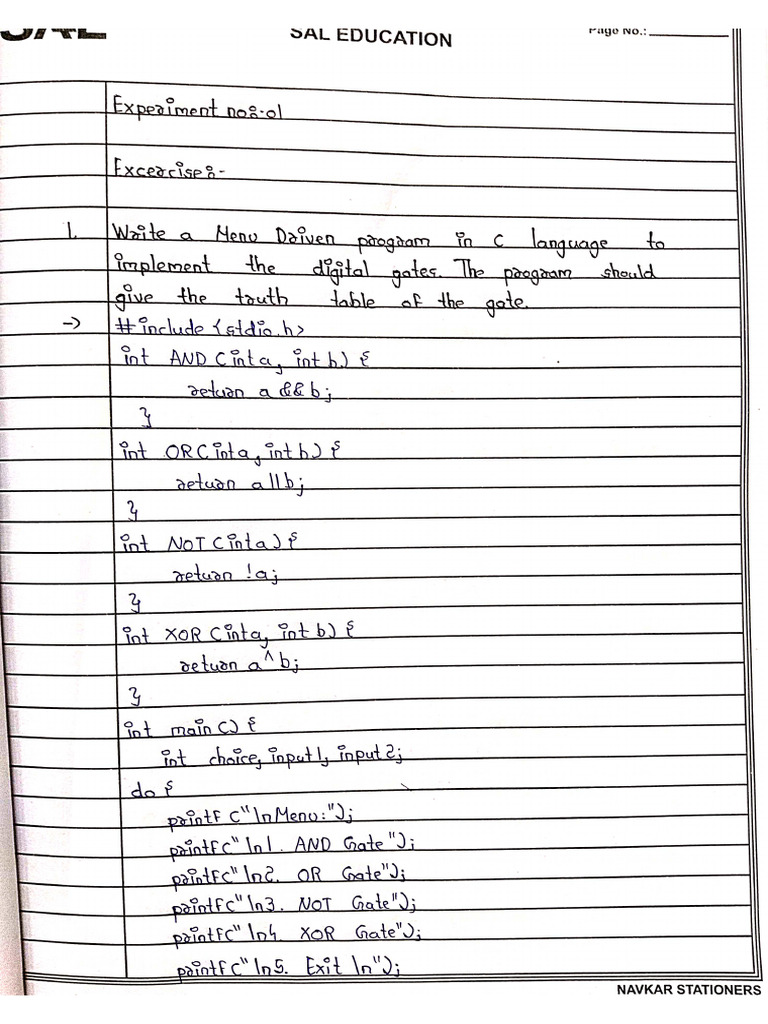 SAL
SAL EDUCATION
Page No.:
Experiment no:-01
Excercise:-
1. Write a Menu Driven program in C language to
implement the digital gates. The program should
give the truth table of the gate.
-> #include <stdio.h>
int AND (int a, int b) {
return a && b;
}
int OR (int a, int b) {
return a || b;
}
int NOT (int a) {
return !a;
}
int XOR (int a, int b) {
return a ^ b;
}
int main () {
int choice, input1, input2;
do {
printf ("\nMenu:");
printf ("\n1. AND Gate");
printf ("\n2. OR Gate");
printf ("\n3. NOT Gate");
printf ("\n4. XOR Gate");
printf ("\n5. Exit \n");
NAVKAR STATIONERS